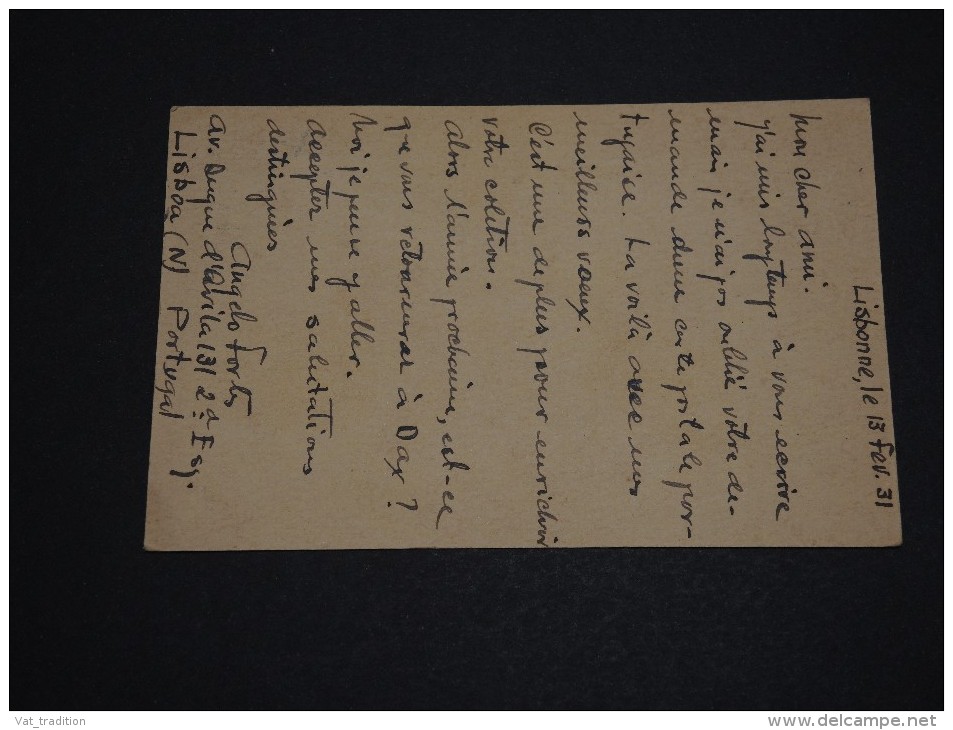 Lisbonne, le 13 Fev. 31
Mon cher ami.
J'ai mis longtemps à vous ecrire
mais je n'ai pas oublié votre de-
mande dune carte postale por-
tugaise. La voilà avec mes
meilleurs voeux.
C'est une de plus pour enrichir
votre coletion.
Alors l'année prochaine, est-ce
que vous retournez à Dax?
Moi je pense y aller.
Accepter mes salutations
destinguées
Angelo Fortes
Av. Duque d'Avila 131 2º Esq.
Lisboa (N) Portugal
Vat_tradition
delcampe.net